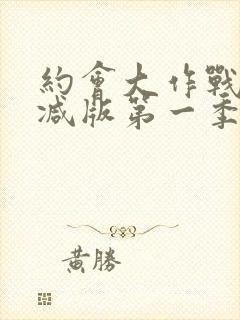 約會大作戰
減版第一季
黃勝